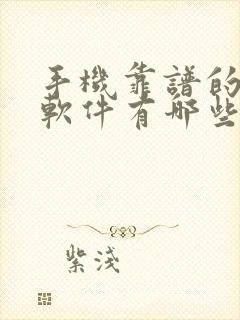 手機靠譜的
軟件有哪些
紫淺